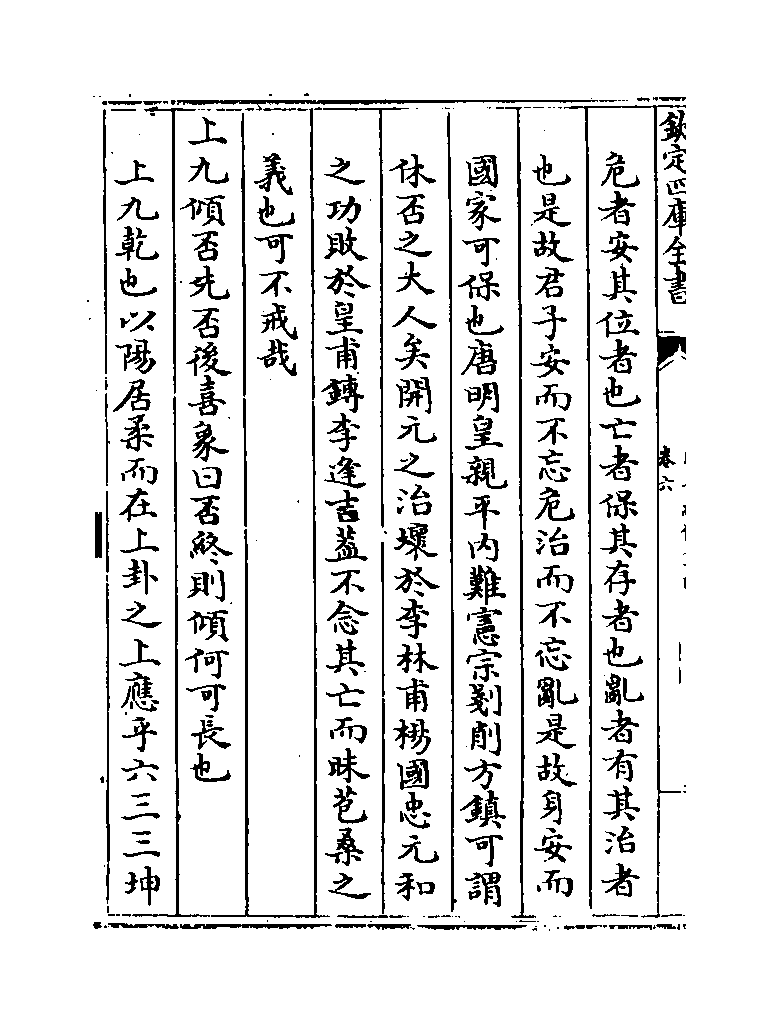 欽定四庫全書
卷六
危者安其位者也亡者保其存者也亂者有其治者
也是故君子安而不忘危治而不忘亂是故身安而
國家可保也唐明皇親平内難憲宗剗削方鎮可謂
休否之大人矣開元之治壞於李林甫楊國忠元和
之功敗於皇甫鏄李逢吉葢不念其亡而昧苞桑之
義也可不戒哉
上九傾否先否後喜象曰否終則傾何可長也
上九乾也以陽居柔而在上卦之上應乎六三三坤